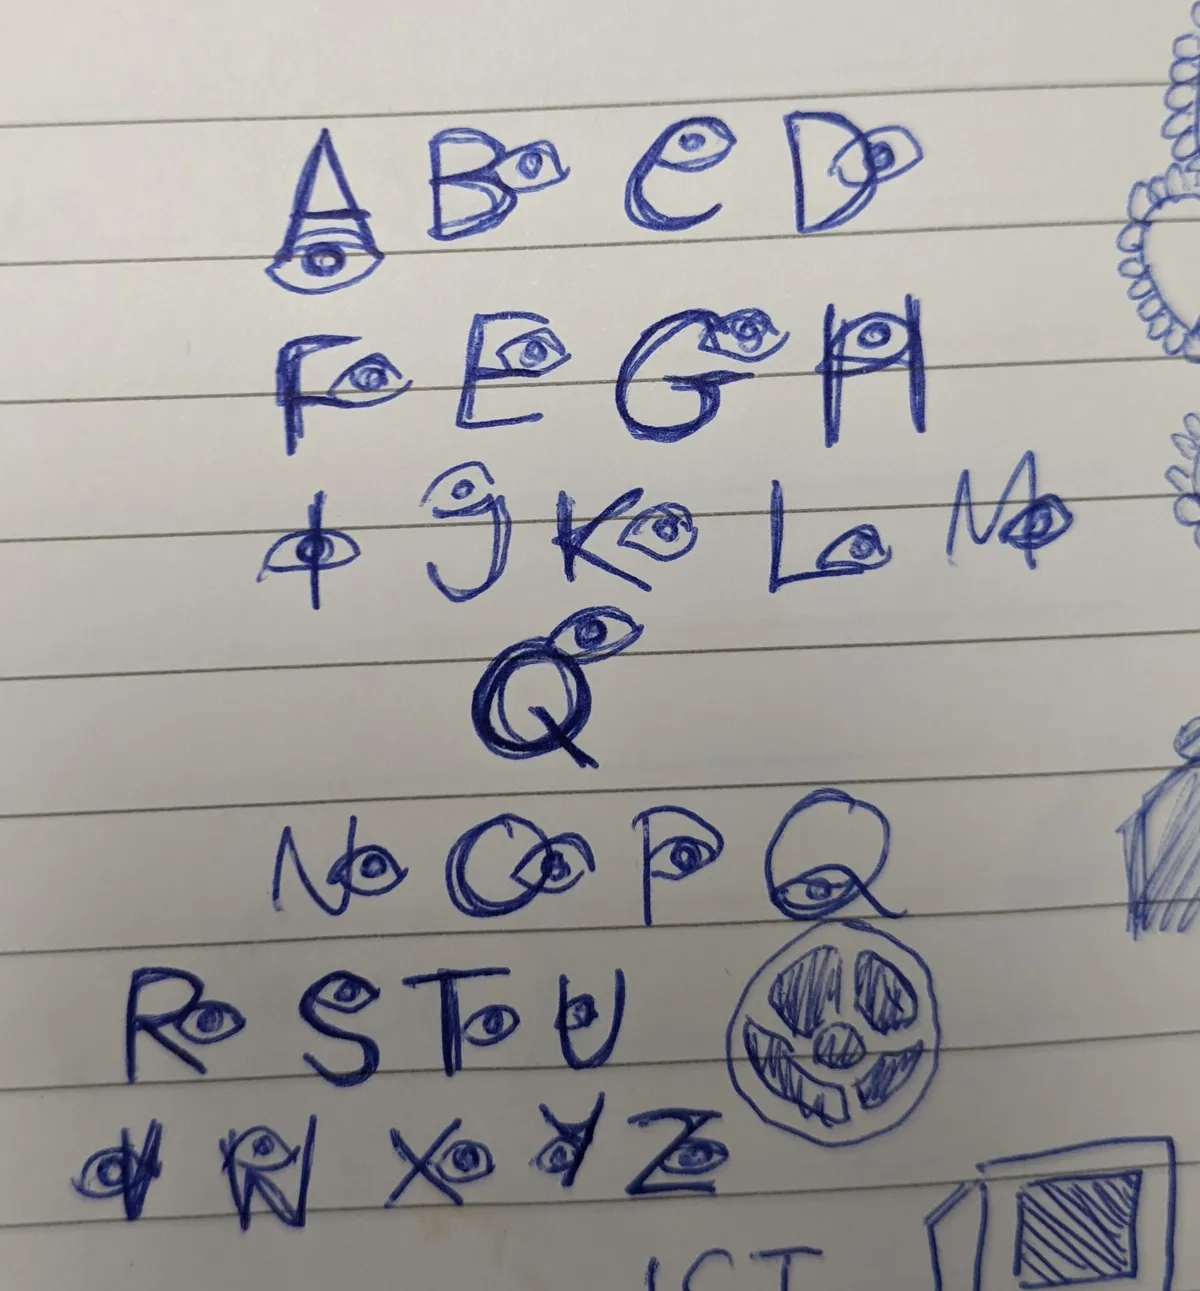 A B C D
F E G H
I J K L M
Q
N O P Q
R S T U
V W X Y Z
ICT